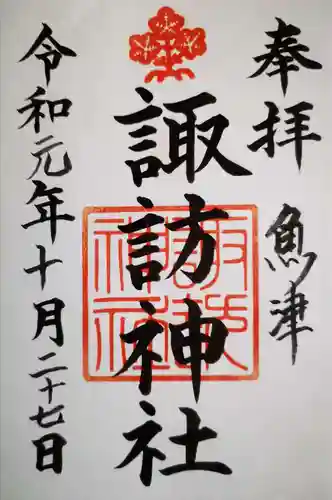 奉拝　魚津
諏訪神社
令和元年十月二十七日